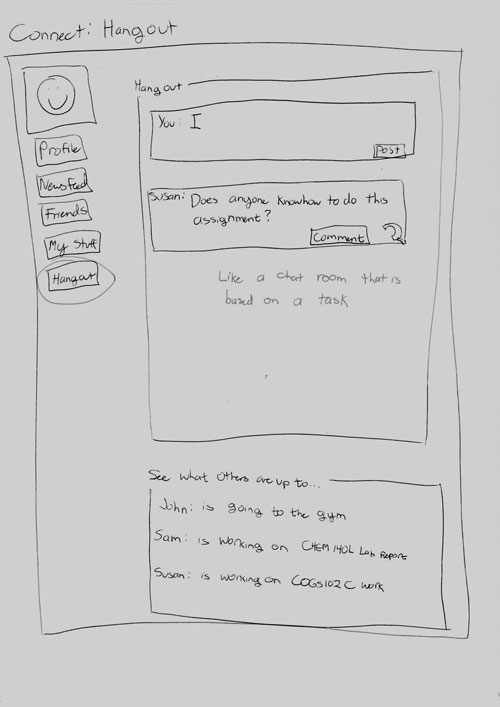 Connect: Hangout
Profile
Newsfeed
Friends
My Stuff
Hangout
Hangout
You: I
Post
Susan: Does anyone know how to do this
assignment?
Comment
Like a chat room that is
based on a task
See what others are up to...
John: is going to the gym
Sam: is working on CHEM 140L Lab Report
Susan: is working on COGS102C work